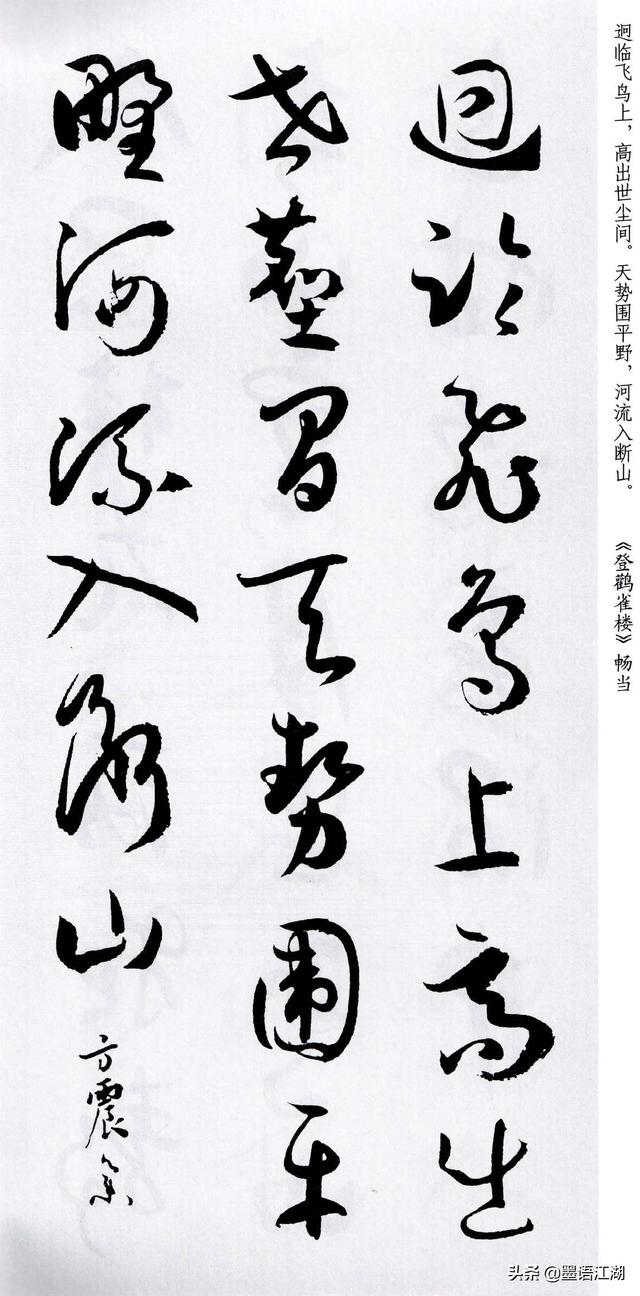 迥临飞鸟上，高出世尘间。天势围平野，河流入断山。　《登鹳雀楼》畅当
迥臨飛鳥上高出
世塵間天勢圍平
野河流入斷山
方震
头条@墨语江湖